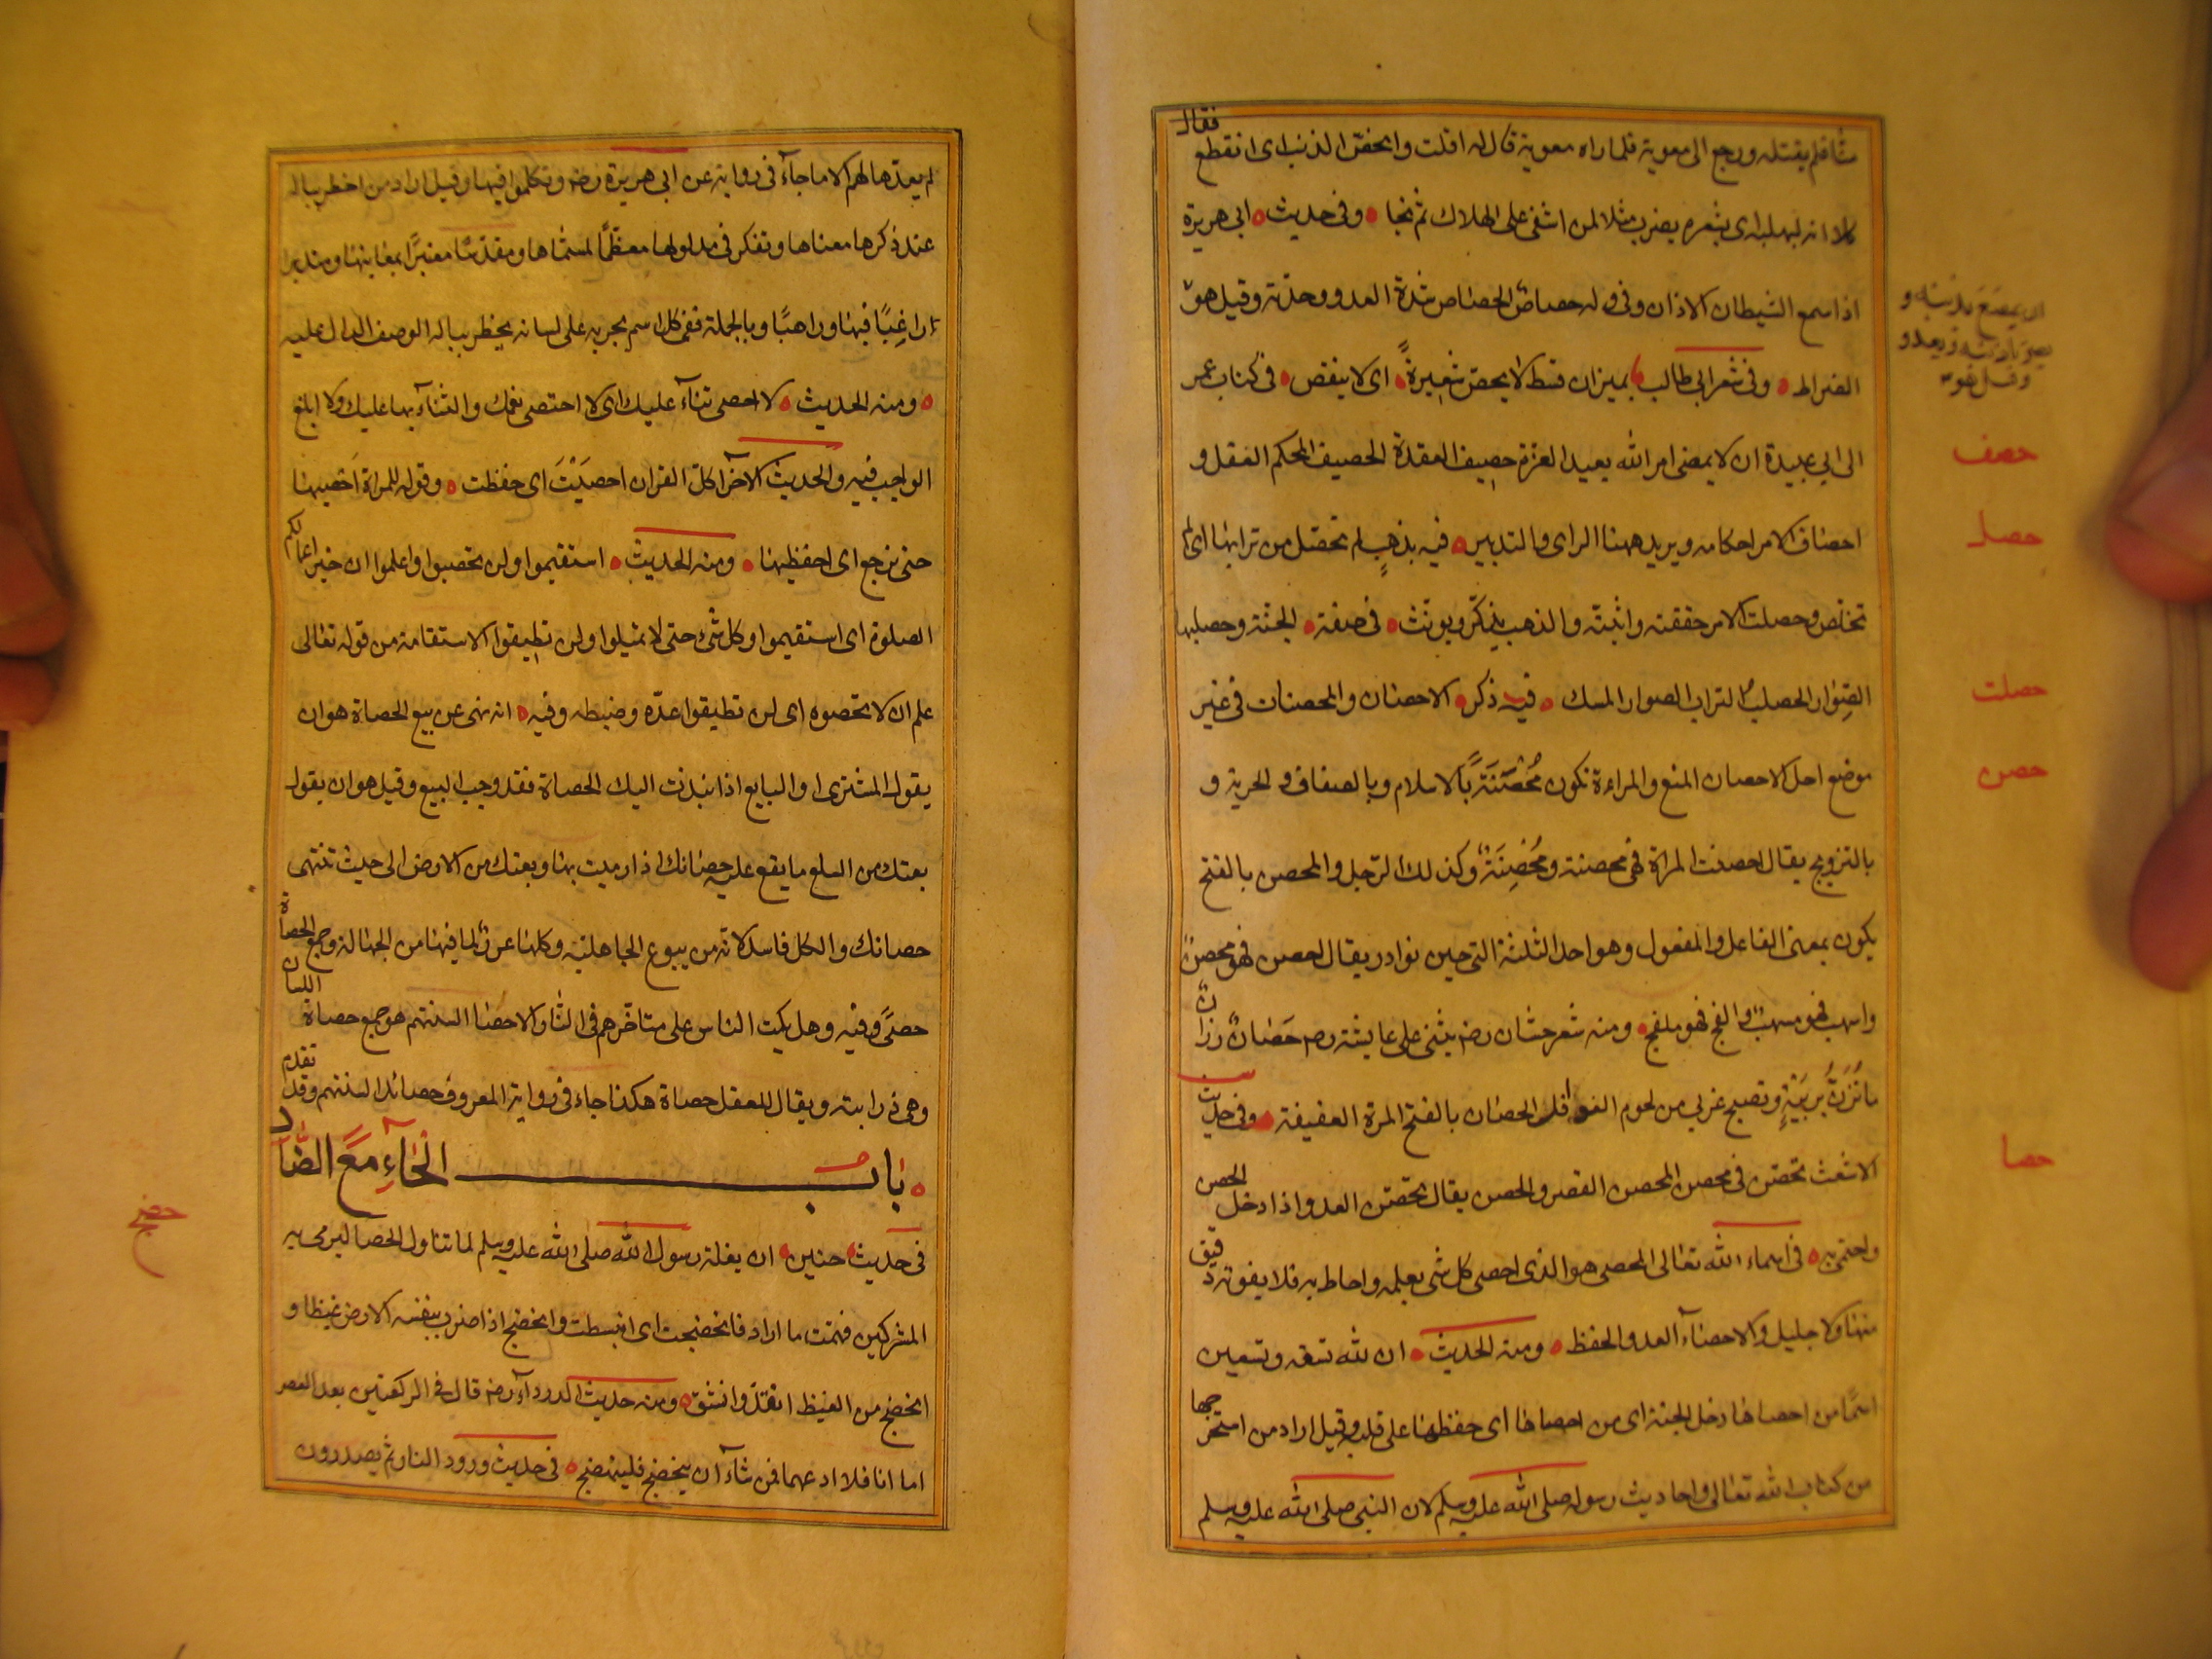 مثا فلم يقتله ورجع الى معوية فلما راه معوية قال له افلت وانحصّ الذنب اى انقطع فقال
كلا انه لبهلبه اى بشعره يضرب مثلا لمن اشفى على الهلاك ثم نجا وفى حديث ابى هريرة
اذا سمع الشيطان الاذان ولى وله حصاص الحصاص شدة العدو وحدته وقيل هو
الضراط وفى شعر ابى طالب بميزان قسط لا يحص شعيرة اى لا ينقص فى كتاب عمر
الى ابى عبيدة ان لا يمضى امر الله بعيد الغرة حصيف العقدة الحصيف المحكم العقل و
احصاف الامر احكامه ويريد ههنا الراى والتدبير فيه بذهب لم تحصل من ترابها اى لم
تخلص وحصلت الامر حققته واثبته والذهب يذكر ويونث فى صفة الجنة وحصلبها
الصوار الحصلب التراب الصوار المسك فيه ذكر الاحصان والمحصنات فى غير
موضع اصل الاحصان المنع والمراءة تكون مُحْصَنَة بالاسلام وبالعفاف والحرية و
بالتزويج يقال احصنت المراة فهى محصنة ومُحْصِنَة وكذلك الرجل والمحصن بالفتح
يكون بمعنى الفاعل والمفعول وهو احد الثلثة التى جين نوادر يقال احصن فهو محصن
واسهب فهو مسهب والفج فهو ملفج ومنه شعر حسان رضه يثنى على عايشة رضه حَصَان رزان
ما تُزَنُّ بريبة وتصبح غرثى من لحوم الغوافل الحصان بالفتح المرة العفيفة وفى حديث
الاشعث تحصن فى محصن المحصن القصر والحصن يقال تحصن العدو اذا دخل الحصن
واحتمى به فى اسماء الله تعالى المحصى هو الذى احصى كل شى بعلمه واحاط به فلا يفوته دقيق
منها ولا جليل والاحصاء العد والحفظ ومنه الحديث ان لله تسعة وتسعين
اسمًا من احصاها دخل الجنة اى من احصاها اى حفظها على قلبه وقيل اراد من استخرجها
من كتاب الله تعالى واحاديث رسوله صلى الله عليه وسلم لان النبى صلى الله عليه وسلم
حصف
حصل
حصلت
حصن
حصا
لم يعدها لهم الا ما جآء فى رواية عن ابى هريرة رضه وتكلموا فيها وقيل اراد من اخطر بباله
عند ذكرها معناها وتفكر فى مدلولها معظمًا لمسماها ومقدسًا معتبرًا بمعانيها ومتدبرا
راغبًا فيها وراهبًا وبالجملة ففى كل اسم يجريه على لسانه يخطر بباله الوصف الدال عليه
ومنه الحديث لا احصى ثنآء عليك اى لا احصى نعمك والثنآء بها عليك ولا ابلغ
الواجب فيه والحديث الآخر اكل القران احصَيْتَ اى حفظت وقوله للمراة احصيها
حتى نرجع اى احفظيها ومنه الحديث استقيموا ولن تحصوا واعلموا ان خير اعمالكم
الصلوة اى استقيموا وكل شى حتى لا تميلوا ولن تطيقوا الاستقامة من قوله تعالى
علم ان لا تحصوه اى لن تطيقوا عدّه وضبطه وفيه انه نهى عن بيع الحصاة هو ان
يقول المشترى او البايع اذا نبذت اليك الحصاة فقد وجب البيع وقيل هو ان يقول
بعتك من السلع ما يقع عليه حصاتك اذا رميت بها وبعتك من الارض الى حيث تنتهى
حصاتك والكل فاسد لانه من بيوع الجاهلية وكلها غرر لما فيها من الجهالة وجمع الحصاة
حصًى وفيه وهل يكب الناس على مناخرهم فى النار الا حصا السنتهم هو جمع حصاة اللسان
وهى ذرابته ويقال للعقل حصاة هكذا جاء فى رواية المعروف حصائد السنتهم وقد تقدم
باب الحآءِ مَعَ الضَّاد
فى حديث حنين ان بغلة رسول الله صلى الله عليه وسلم لما تناول الحصا ليرمى به
المشركين فهمت ما اراد فانحضجت اى انبسطت وانحضج اذا ضرب بنفسه الارض غيظا و
انحضج من الغيظ انقد وانشق ومنه حديث الدردآء رضه قال فى الركعتين بعد العصر
اما انا فلا ادعهما فمن شآء ان ينحضج فلينحضج فى حديث ورود النار ثم يصدرون
حضج